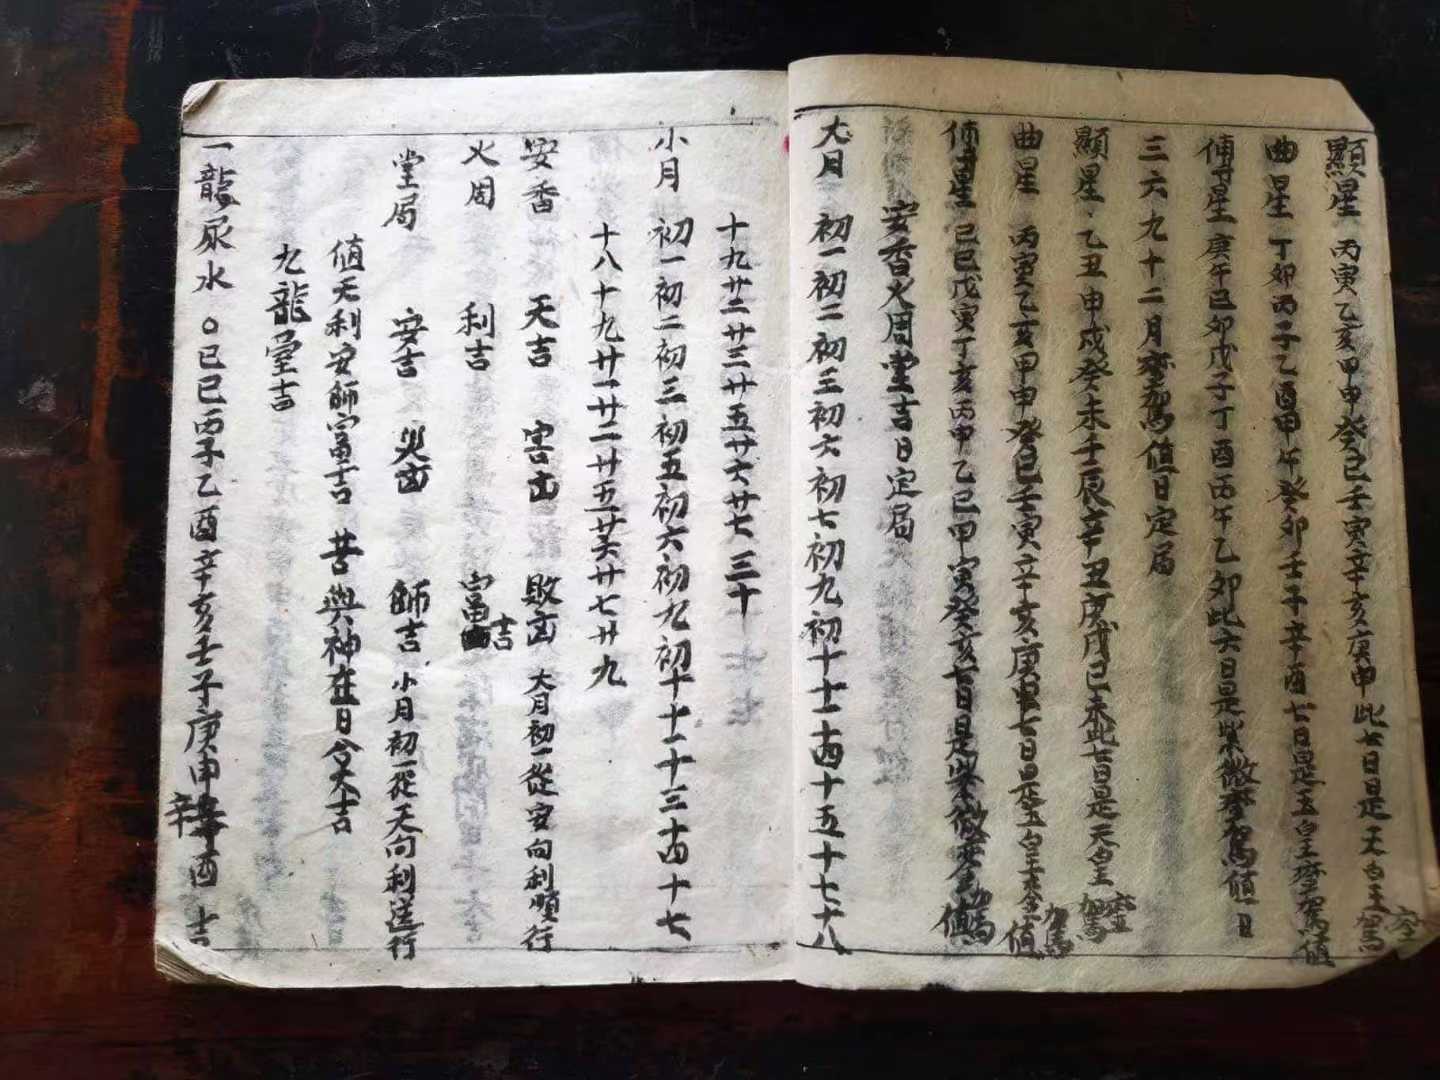 顯星 丙寅乙亥甲申癸巳壬寅辛亥庚申此七日是天皇鑾駕
曲星 丁卯丙子乙酉甲午癸卯壬子辛酉七日是玉皇鑾駕值
傅星 庚午己卯戊子丁酉丙午乙卯此六日是紫微鑾駕值日
三六九十二月鑾駕值日定局
顯星 乙丑甲戌癸未壬辰辛丑庚戌己未此七日是天皇鑾駕
曲星 丙寅乙亥甲申癸巳壬寅辛亥庚申七日是玉皇鑾駕值
傅星 己巳戊寅丁亥丙申乙巳甲寅癸亥七日是紫微鑾駕值
安香火周堂吉日定局
大月 初一初二初三初六初七初九初十十一十四十五十七十八
十九廿二廿三廿五廿六廿七三十
小月 初一初二初三初五初六初九初十十一十三十四十七
十八十九廿一廿二廿五廿六廿七廿九
安香 天吉 害凶 敗凶 大月初一從安向利順行
火周 利吉 富吉
堂局 安吉 災凶 師吉 小月初一從天向利逆行
值天利安師富吉 若與神在日合大吉
九龍堂吉
一龍尿水 ○己巳丙子乙酉辛亥壬子庚申辛酉 吉